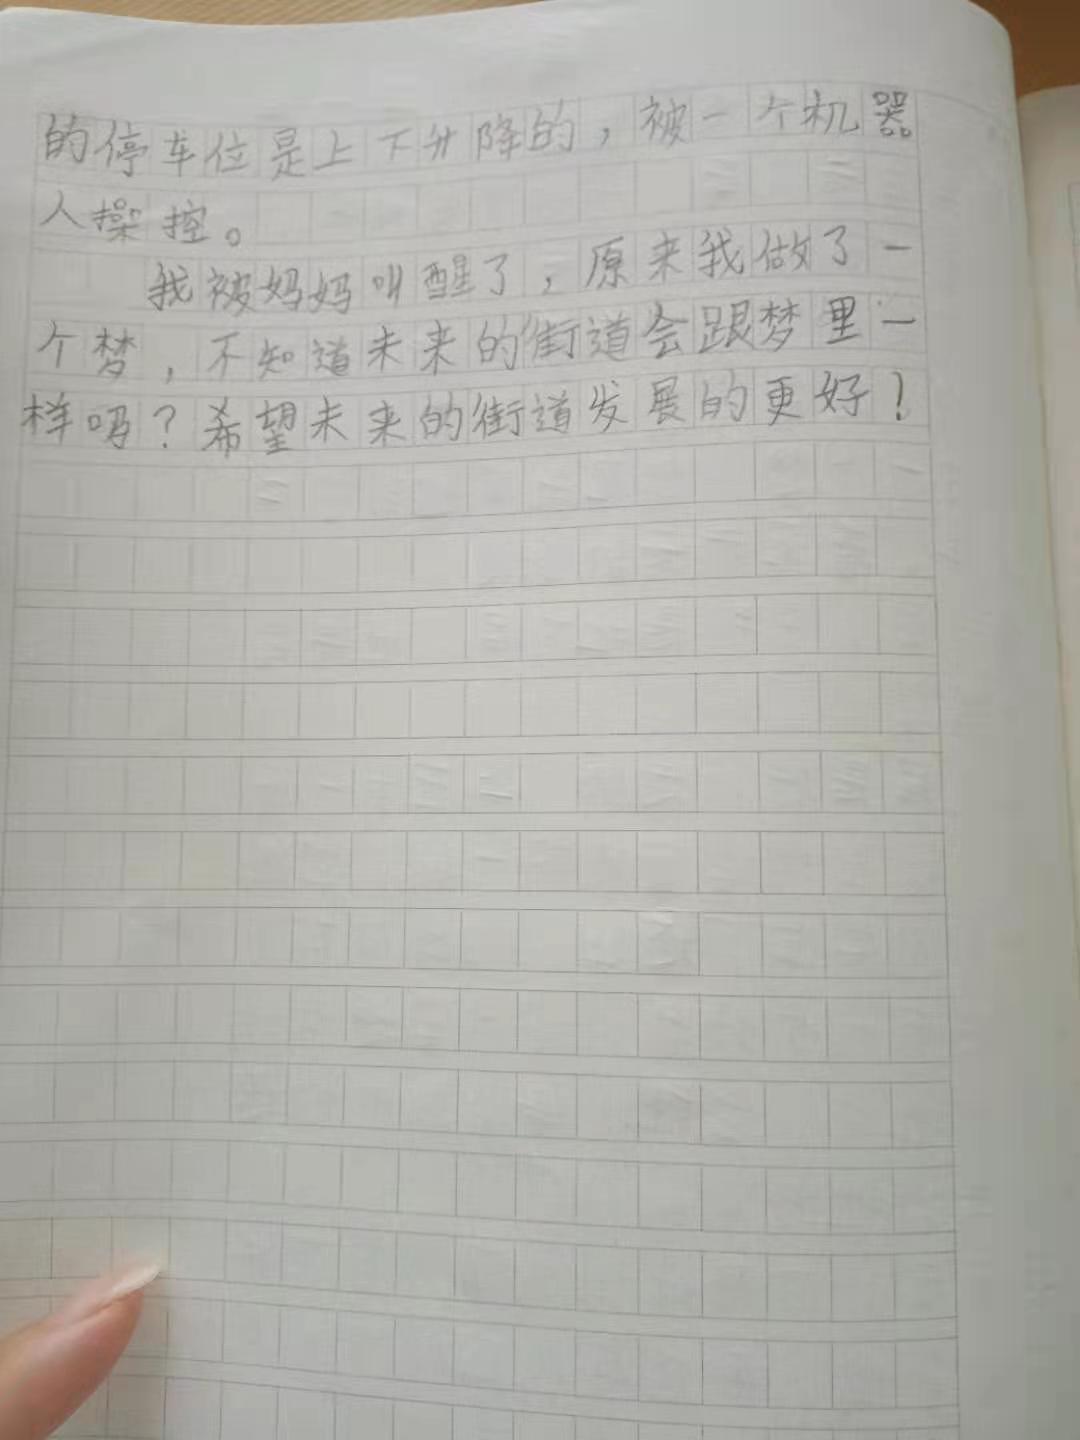 的停车位是上下升降的，被一个机器
人操控。
我被妈妈叫醒了，原来我做了一
个梦，不知道未来的街道会跟梦里一
样吗？希望未来的街道发展的更好！